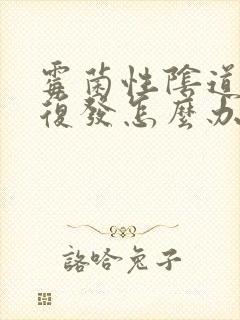 霉菌性陰道
復發怎麼办
諮哈兔子